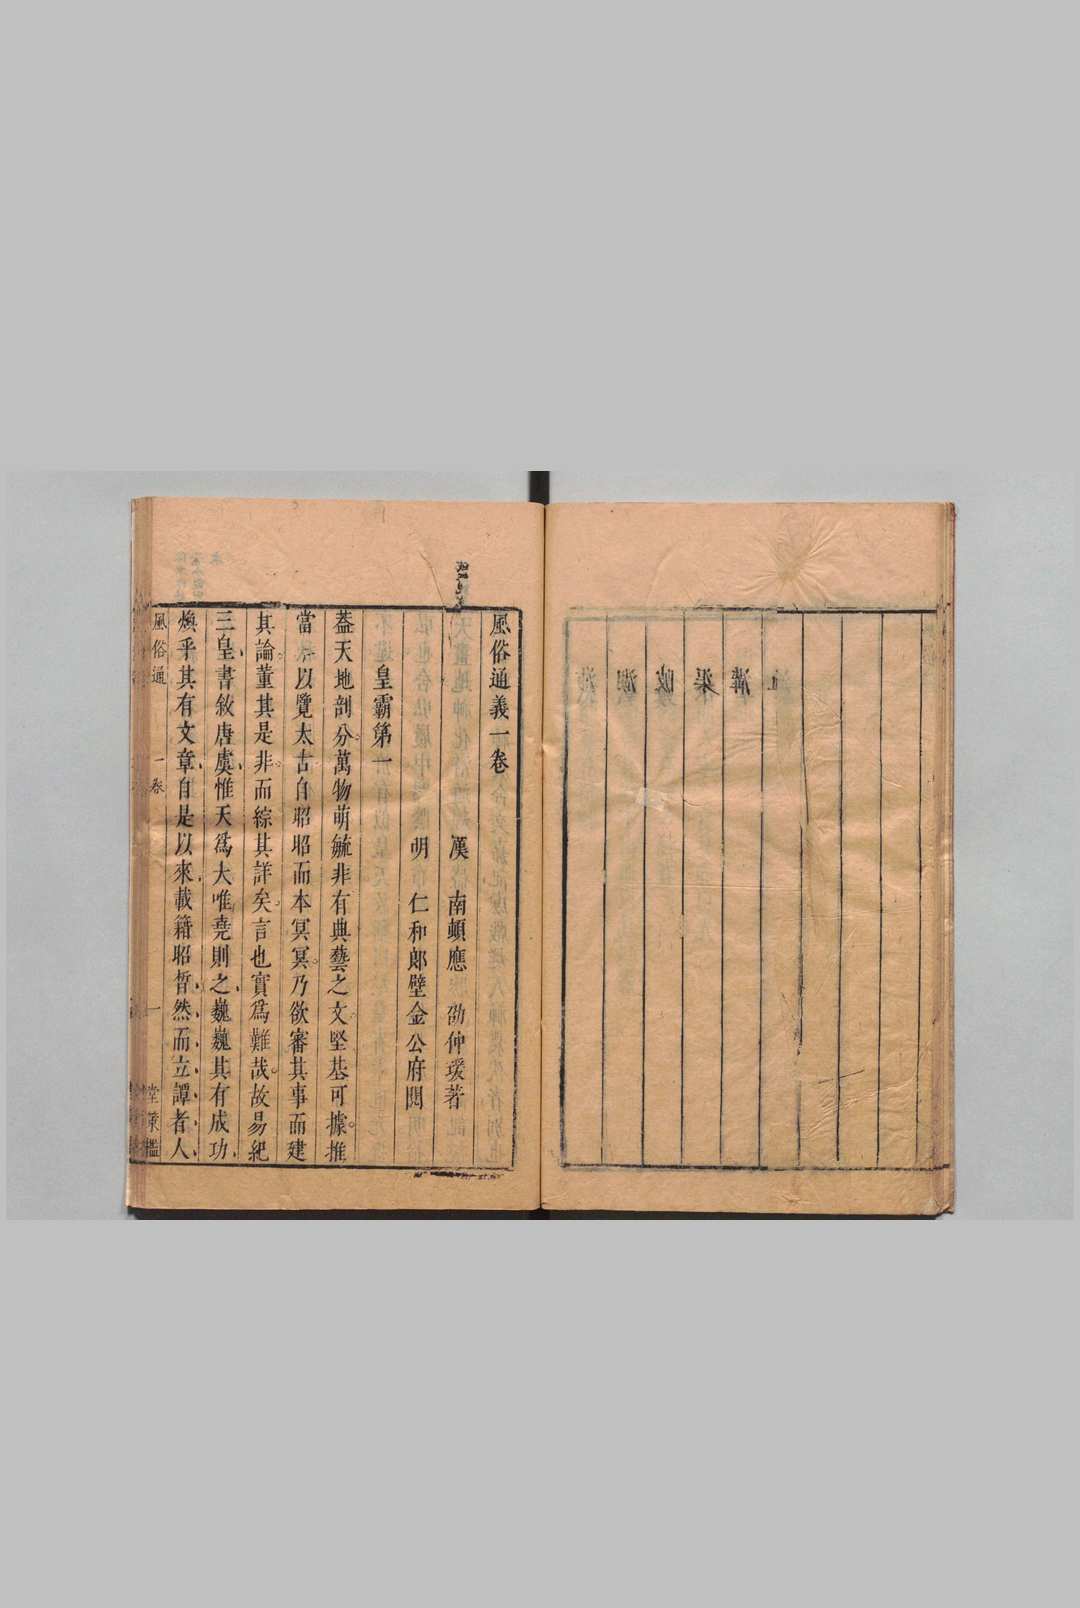 風俗通義一卷
漢 南頓應 劭仲瑗著
明 仁和郎壁金公府閱
皇霸第一
葢天地剖分萬物萌毓非有典藝之文堅基可據推
當今以覽太古自昭昭而本冥冥乃欲審其事而建
其論董其是非而綜其詳矣言也實為難哉故易紀
三皇書敘唐虞惟天為大唯堯則之巍巍其有成功
煥乎其有文章自是以來載籍昭晳然而立譚者人
風俗通 一卷 一 堂策檻